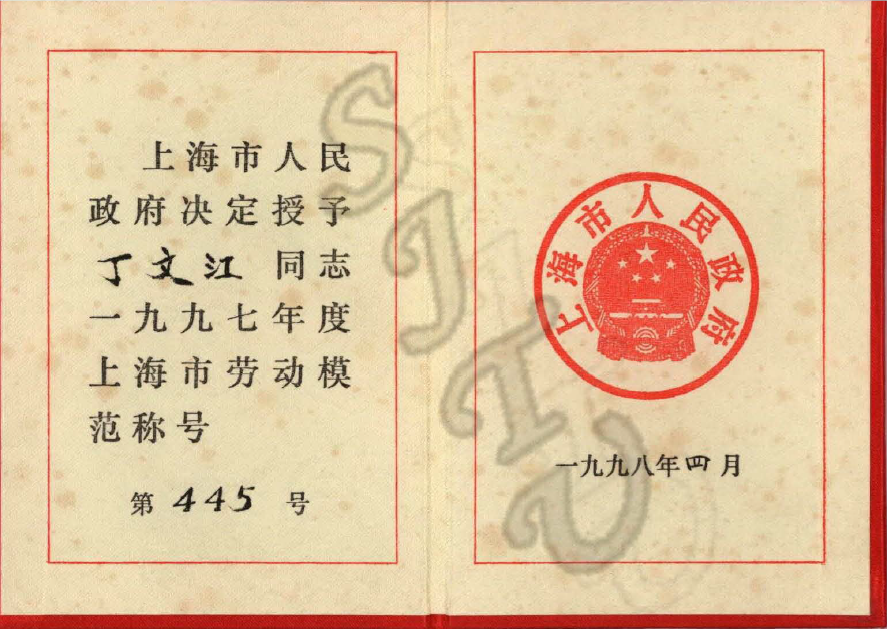 上海市人民
政府决定授予
丁文江 同志
一九九七年度
上海市劳动模
范称号
第 445 号
上海市人民政府
一九九八年四月
SJTU